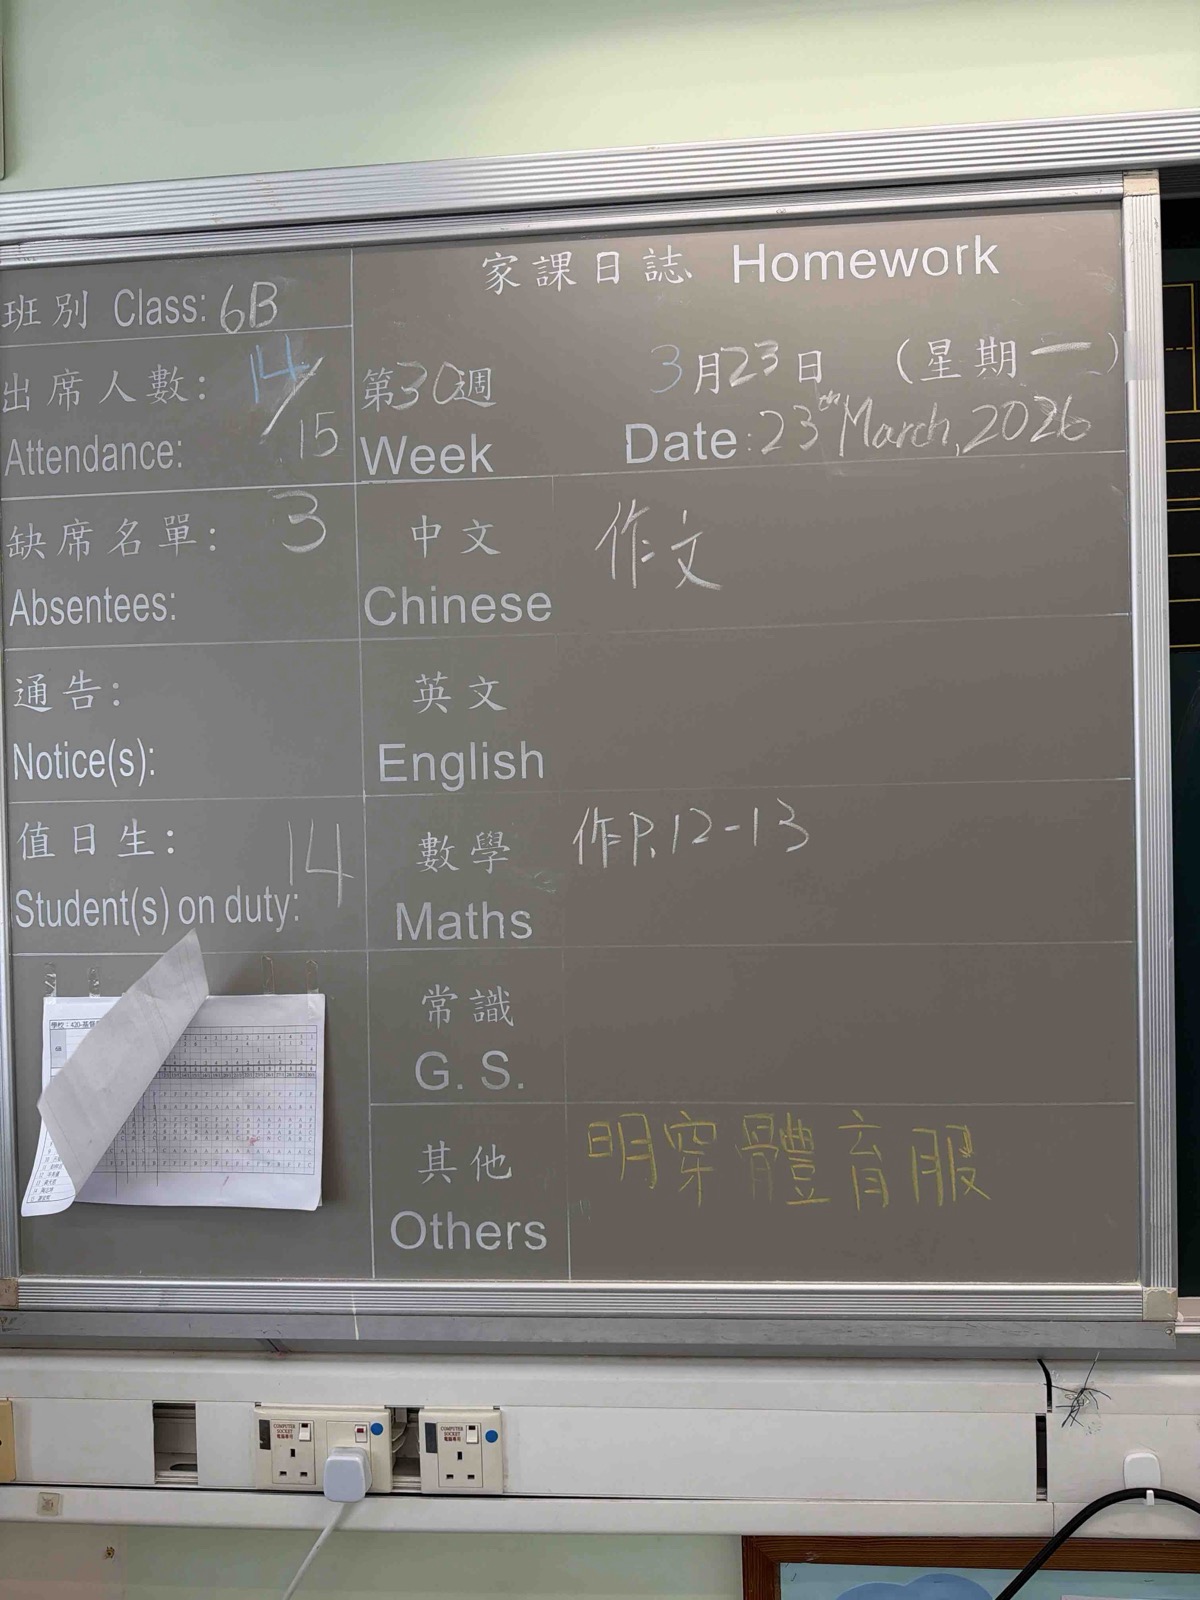 家課日誌 Homework
班別 Class: 6B
出席人數: 14/15
Attendance:
第30週 3月23日 (星期一)
Week Date: 23th March, 2026
缺席名單: 3
Absentees:
中文 作文
Chinese
通告:
Notice(s):
英文
English
值日生: 14
Student(s) on duty:
數學 作P.12-13
Maths
常識
G. S.
其他 明穿體育服
Others
COMPUTER SOCKET 電腦專用
COMPUTER SOCKET 電腦專用